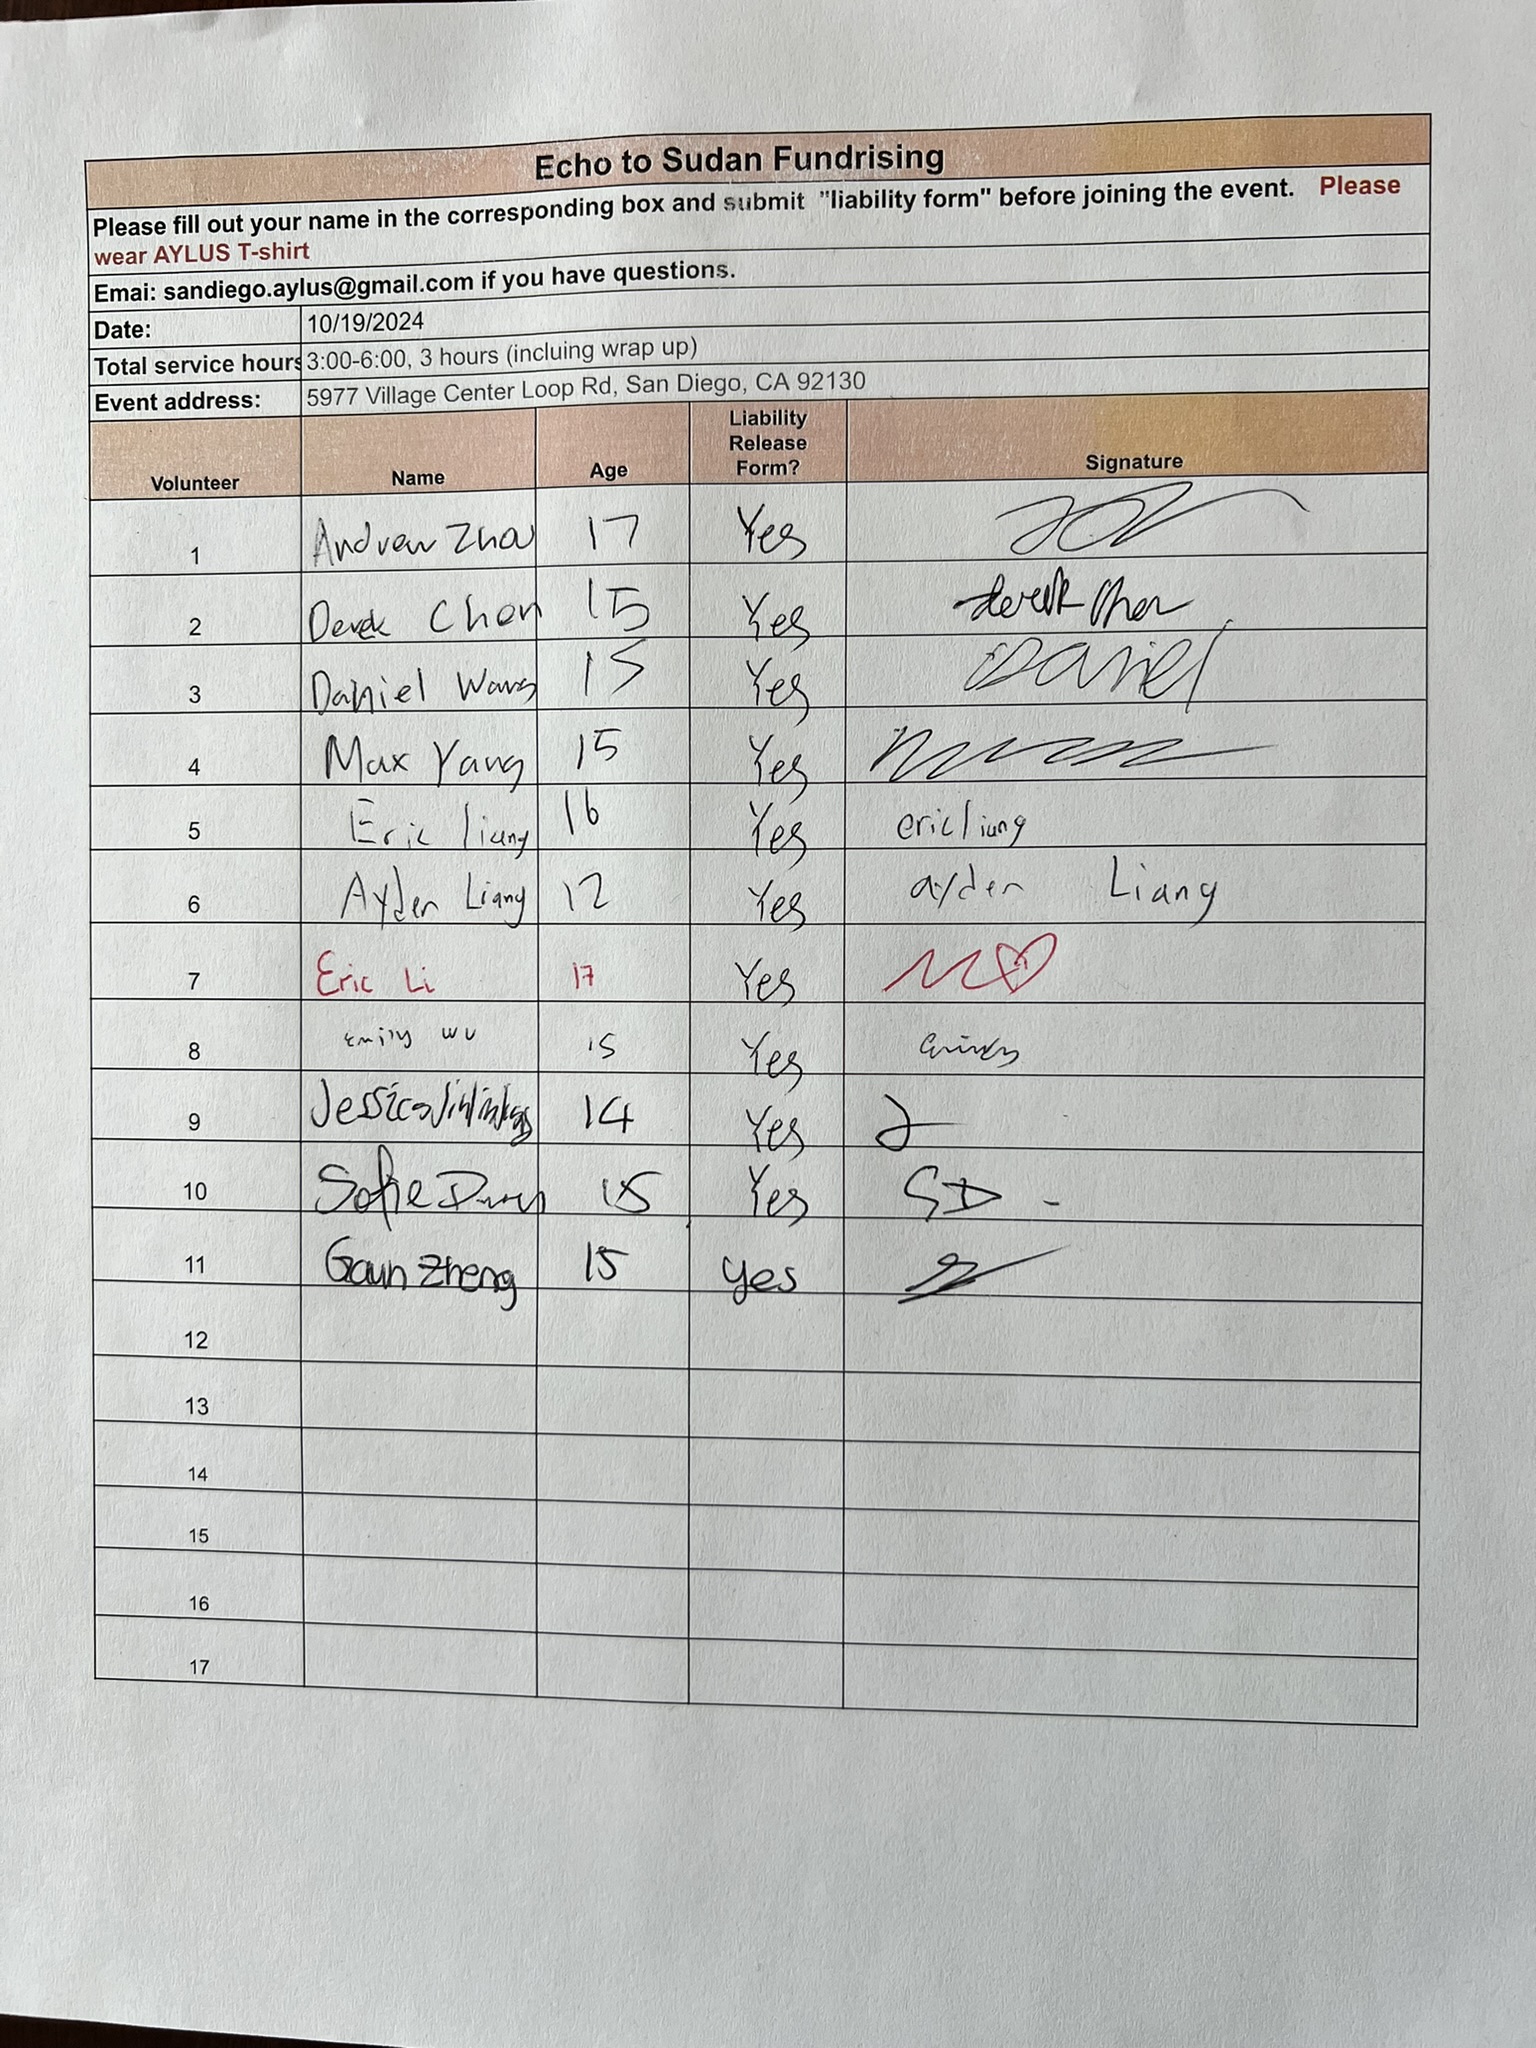 Echo to Sudan Fundrising
Please fill out your name in the corresponding box and submit "liability form" before joining the event. Please
wear AYLUS T-shirt
Emai: sandiego.aylus@gmail.com if you have questions.
Date: 10/19/2024
Total service hours 3:00-6:00, 3 hours (incluing wrap up)
Event address: 5977 Village Center Loop Rd, San Diego, CA 92130
Volunteer Name Age Liability Release Form? Signature
1 Andrew Zhou 17 Yes
2 Derek Chen 15 Yes derek Chen
3 Daniel Wang 15 Yes Daniel
4 Max Yang 15 Yes
5 Eric liang 16 Yes eric liang
6 Ayden Liang 12 Yes ayden Liang
7 Eric Li 17 Yes
8 Emily wu 15 Yes
9 Jessica 14 Yes
10 Sofie 15 Yes SD
11 Zheng 15 yes
12
13
14
15
16
17